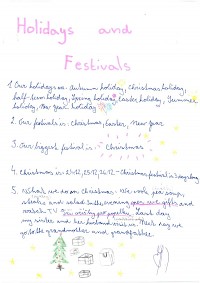 Holidays and
Festivals
1. Our holidays are - Autumn holiday, Christmas holiday,
half-term holiday, Spring holiday, Easter holiday, Summer
holiday, New Year holiday
2. Our festivals is - Christmas, Easter, New Year
3. Our biggest festival is - Christmas.
4. Christmas is: 24.12, 25.12, 26.12 - Christmas festival is 3 days long
5. What we do on Christmas - We cook pea soup,
steaks and salad In the evening open our gifts and
watch TV Next day
my sister and her husband visit us. Next day we
go to the grandmother and grandfather